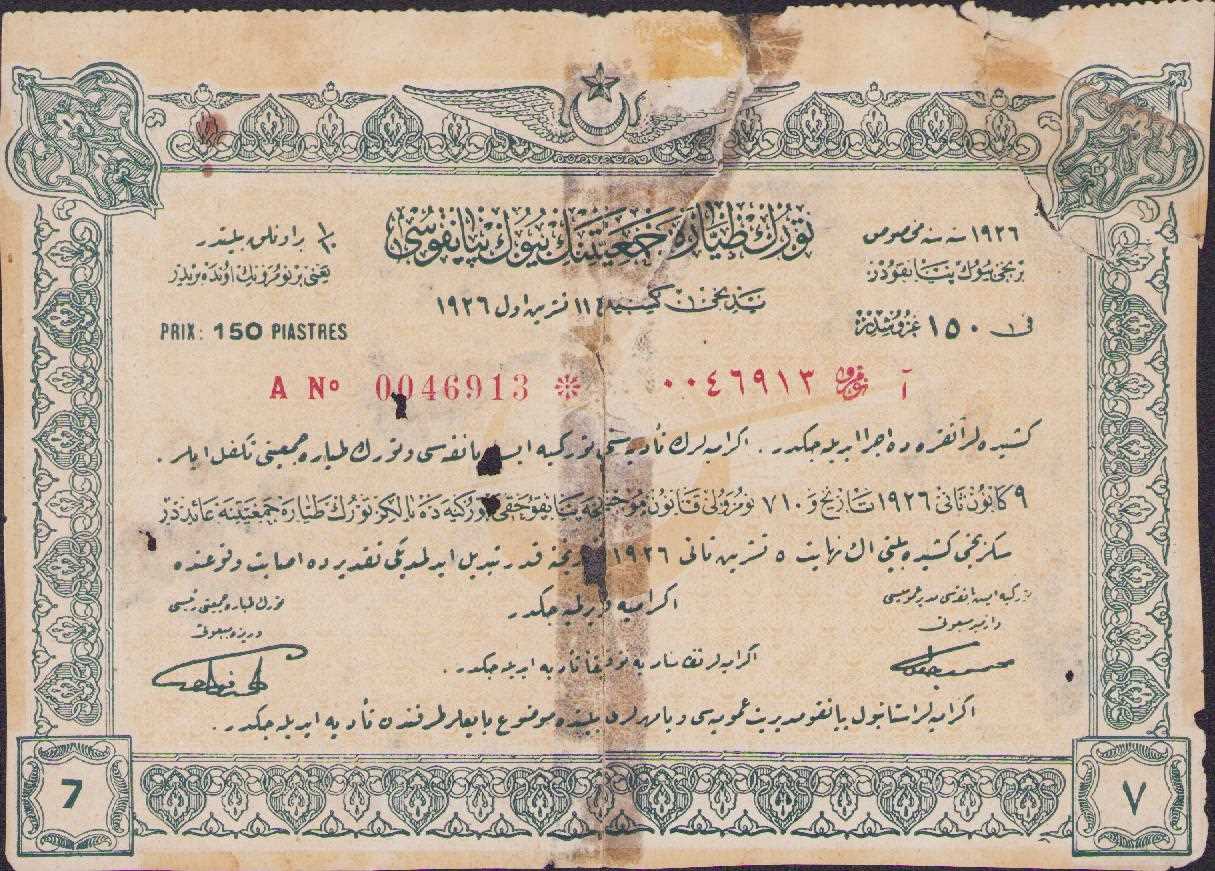 تورك طياره جمعيتنك بيوك پيانقوسى
١٩٢٦ سنه سنه مخصوص
برنجى بيوك پيانقودر
يدنجى كشيده ١١ تشرين اول ١٩٢٦
فى ١٥٠ غروشدر
١/١٠ براونلق بيلتدر
يعنى بر نومرونك اونده بريدر
PRIX: 150 PIASTRES
A Nº 0046913 ٠٠٤٦٩١٣ نومرو آ
كشيده لر آنقره ده اجرا ايديله جكدر . اكراميه لرك تأديه سنى توركيه ايش بانقه سى و تورك طياره جمعيتى تكفل ايلر .
٩ كانون ثانى ١٩٢٦ تاريخ و ٧١٠ نومرولى قانون موجبنجه پيانقو حقى توركيه ده يالكز تورك طياره جمعيتنه عائددر
سكزنجى كشيده بيلتى اك نهايت ٥ تشرين ثانى ١٩٢٦ تاريخنه قدر تبديل ايدلمديكى تقديرده اصابت وقوعنده
اكراميه ويرلميه جكدر
توركيه ايش بانقه سى مدير عموميسى
ازمير مبعوثى
تورك طياره جمعيتى رئيسى
ريزه مبعوثى
اكراميه لر تقسيماتنه توفيقا تأديه ايديله جكدر .
اكراميه لر استانبول پيانقو مديريت عموميه سى و يا مهرلرى بيلتده موضوع بايعلر طرفندن تأديه ايديله جكدر .
7
٧